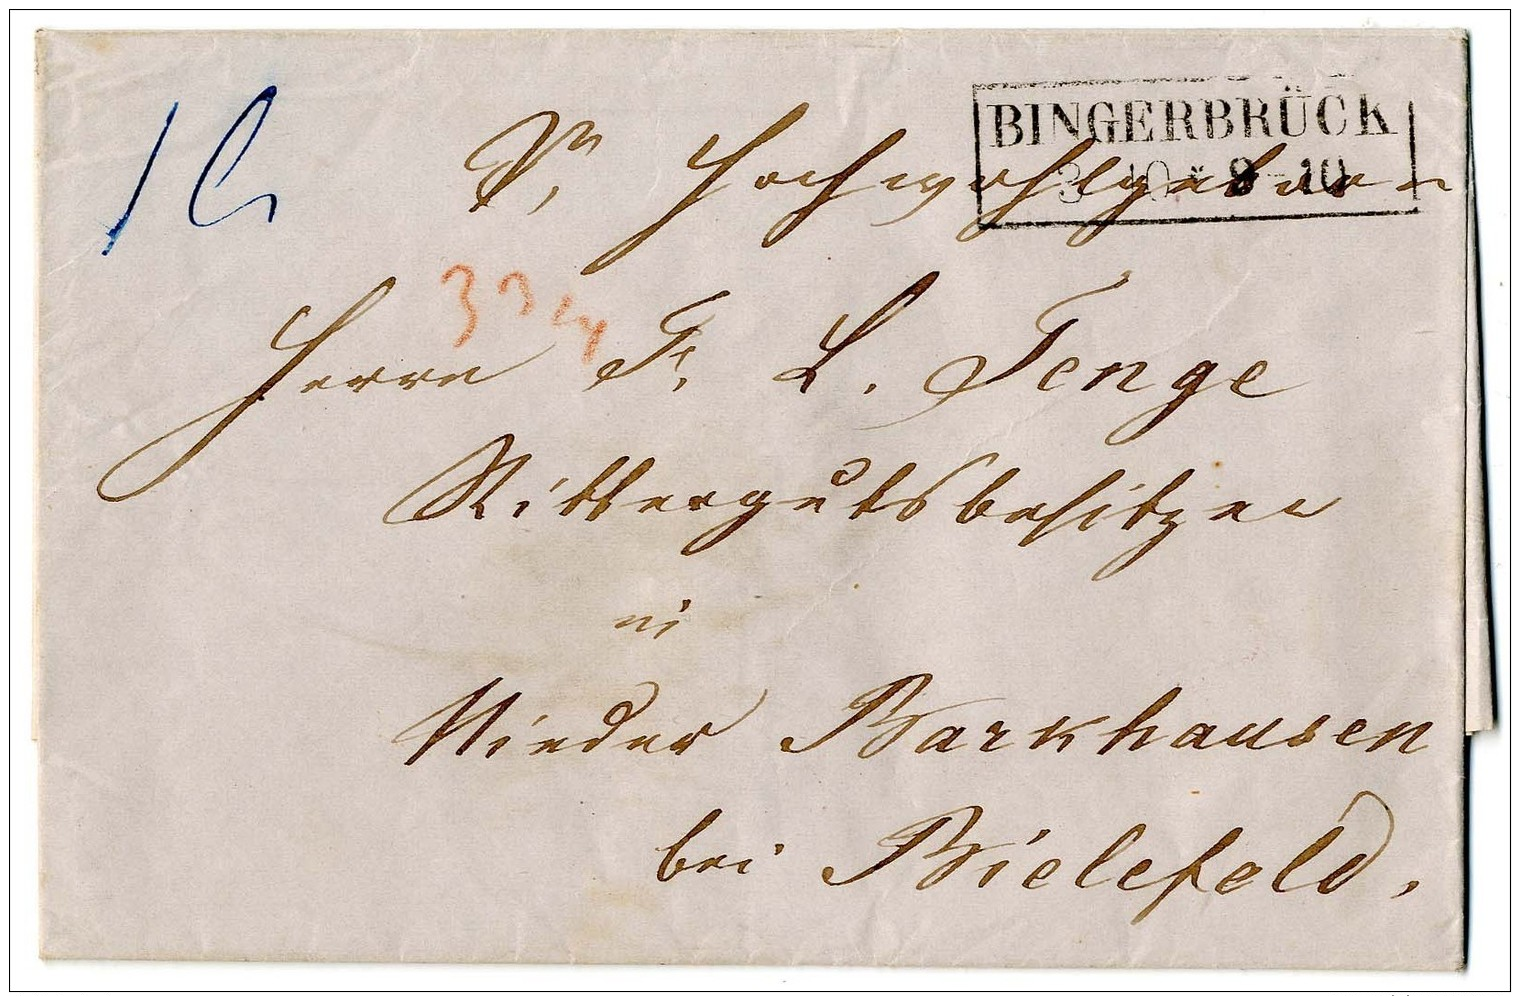 BINGERBRÜCK
3 10 * 8-10
Sr. Hochwohlgeboren
Herrn Fr. L. Tenge
Rittergutsbesitzer
in
Nieder Barkhausen
bei Bielefeld.